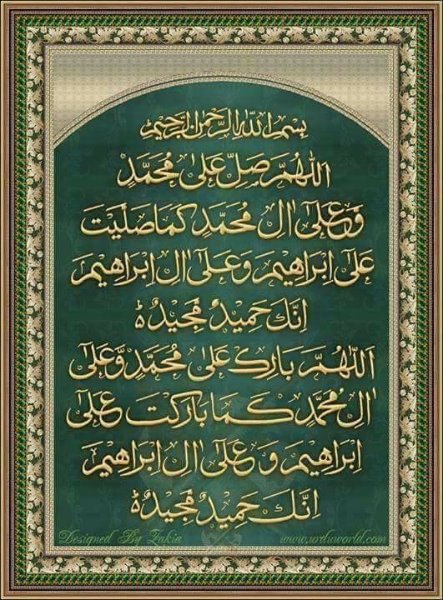 بِسْمِ اللهِ الرَّحْمٰنِ الرَّحِيْمِ
اَللّٰهُمَّ صَلِّ عَلٰى مُحَمَّدٍ
وَّعَلٰٓى اٰلِ مُحَمَّدٍ كَمَا صَلَّيْتَ
عَلٰٓى اِبْرَاهِيْمَ وَعَلٰٓى اٰلِ اِبْرَاهِيْمَ
اِنَّكَ حَمِيْدٌ مَّجِيْدٌ ؕ
اَللّٰهُمَّ بَارِكْ عَلٰى مُحَمَّدٍ وَّعَلٰٓى
اٰلِ مُحَمَّدٍ كَمَا بَارَكْتَ عَلٰٓى
اِبْرَاهِيْمَ وَعَلٰٓى اٰلِ اِبْرَاهِيْمَ
اِنَّكَ حَمِيْدٌ مَّجِيْدٌ ؕ
Designed By Zakia
www.urduworld.com